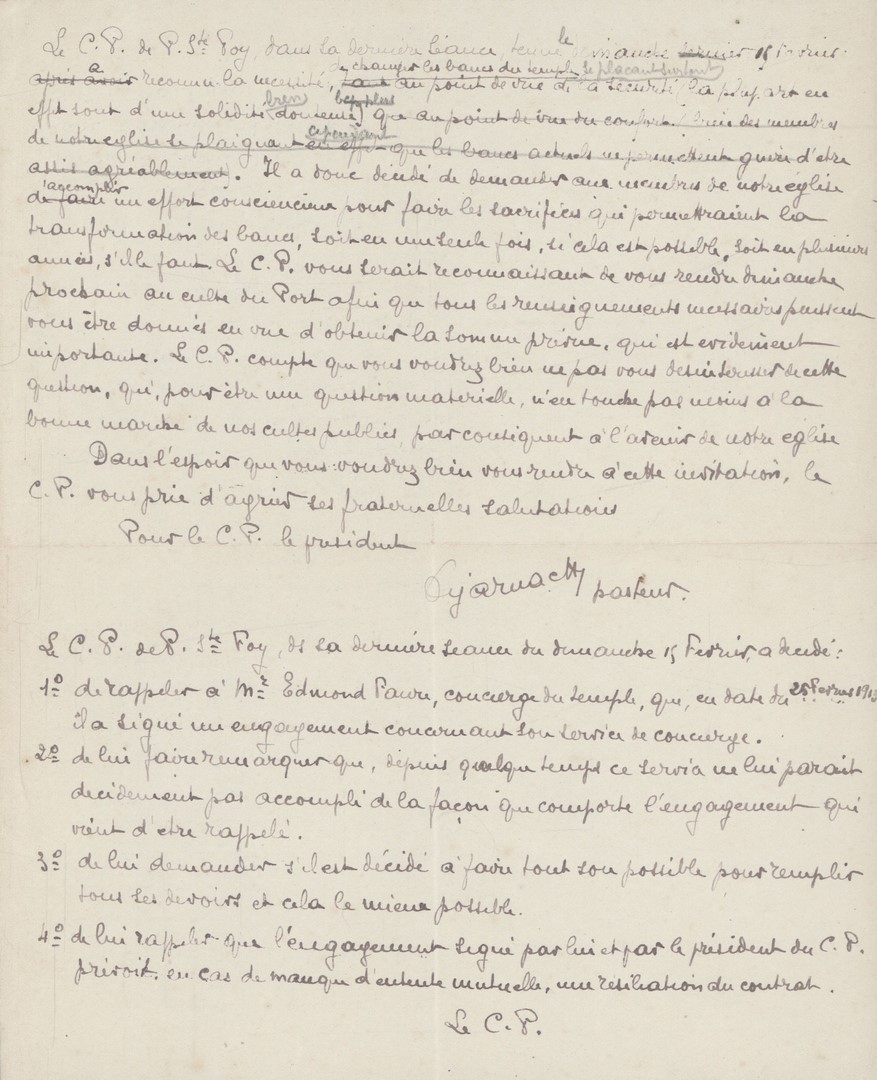 Le C. P. de P. Ste Foy, dans sa dernière séance, tenue le dimanche dernier 15 Février
de changer les bancs du temple se plaçant surtout
après avoir a reconnu la necessité, tant au point de vue de la sécurité (la plupart en
bien
effet sont d'une solidité douteuse) que au point de vue du confort (bien des membres
cependant
de notre église se plaignant en effet que les bancs actuels ne permettent guère d'être
assis agréablement. Il a donc décidé de demander aux membres de notre église
d'accomplir
de faire un effort consciencieux pour faire les sacrifices qui permettraient la
transformation des bancs, soit en une seule fois, si cela est possible, soit en plusieurs
années, s'il le faut. Le C. P. vous serait reconnaissant de vous rendre dimanche
prochain au culte du Port afin que tous les renseignements necessaires puissent
vous être donnés en vue d'obtenir la somme prévue, qui est evidement
importante. Le C. P. compte que vous voudrez bien ne pas vous desinteresser de cette
question, qui, pour être une question materielle, n'en touche pas moins à la
bonne marche de nos cultes publics, par conséquent à l'avenir de notre église
Dans l'espoir que vous voudrez bien vous rendre à cette invitation, le
C. P. vous prie d'agréer ses fraternelles salutations
Pour le C. P. le président
pasteur.
Le C. P. de P. Ste Foy, ds sa dernière seance du dimanche 15 Fevrier, a decidé :
1º de rappeler à Mr Edmond Faure, concierge du temple, que, en date du 25 Fevrier
il a signé un engagement concernant son service de concierge.
2º de lui faire remarquer que, depuis quelque temps ce service ne lui parait
decidement pas accompli de la façon que comporte l'engagement qui
vient d'etre rappelé.
3º de lui demander s'il est décidé à faire tout son possible pour remplir
tous ses devoirs et cela le mieux possible.
4º de lui rappeler que l'engagement signé par lui et par le président du C. P.
prévoit, en cas de manque d'entente mutuelle, une résiliation du contrat.
Le C. P.